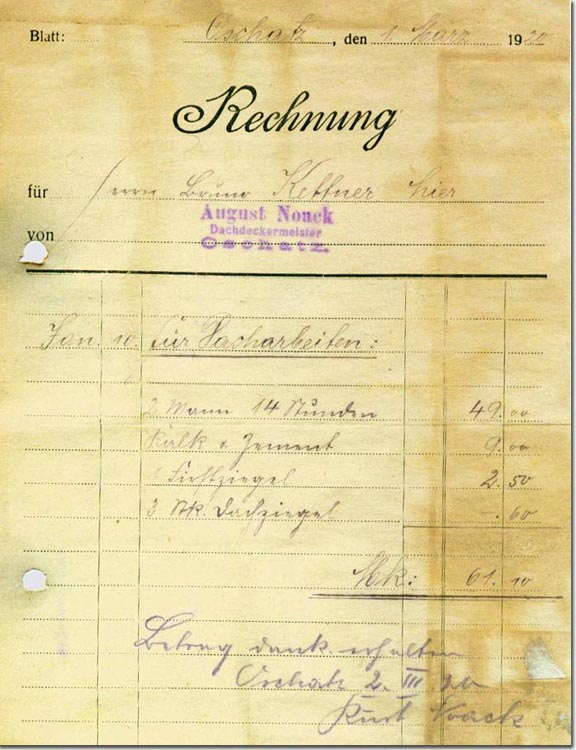 Blatt: Oschatz, den 1. März 1920
Rechnung
für Herrn Bruno Kettner hier
von August Noack
Dachdeckermeister
Oschatz.
Jan. 10. für Dacharbeiten:
2 Mann 14 Stunden 49.00
Kalk u. Zement 9.00
1 Firstziegel 2.50
3 Stk. Dachziegel -.60
Mk: 61.10
Betrag dank. erhalten
Oschatz 2. III 20
Kurt Noack